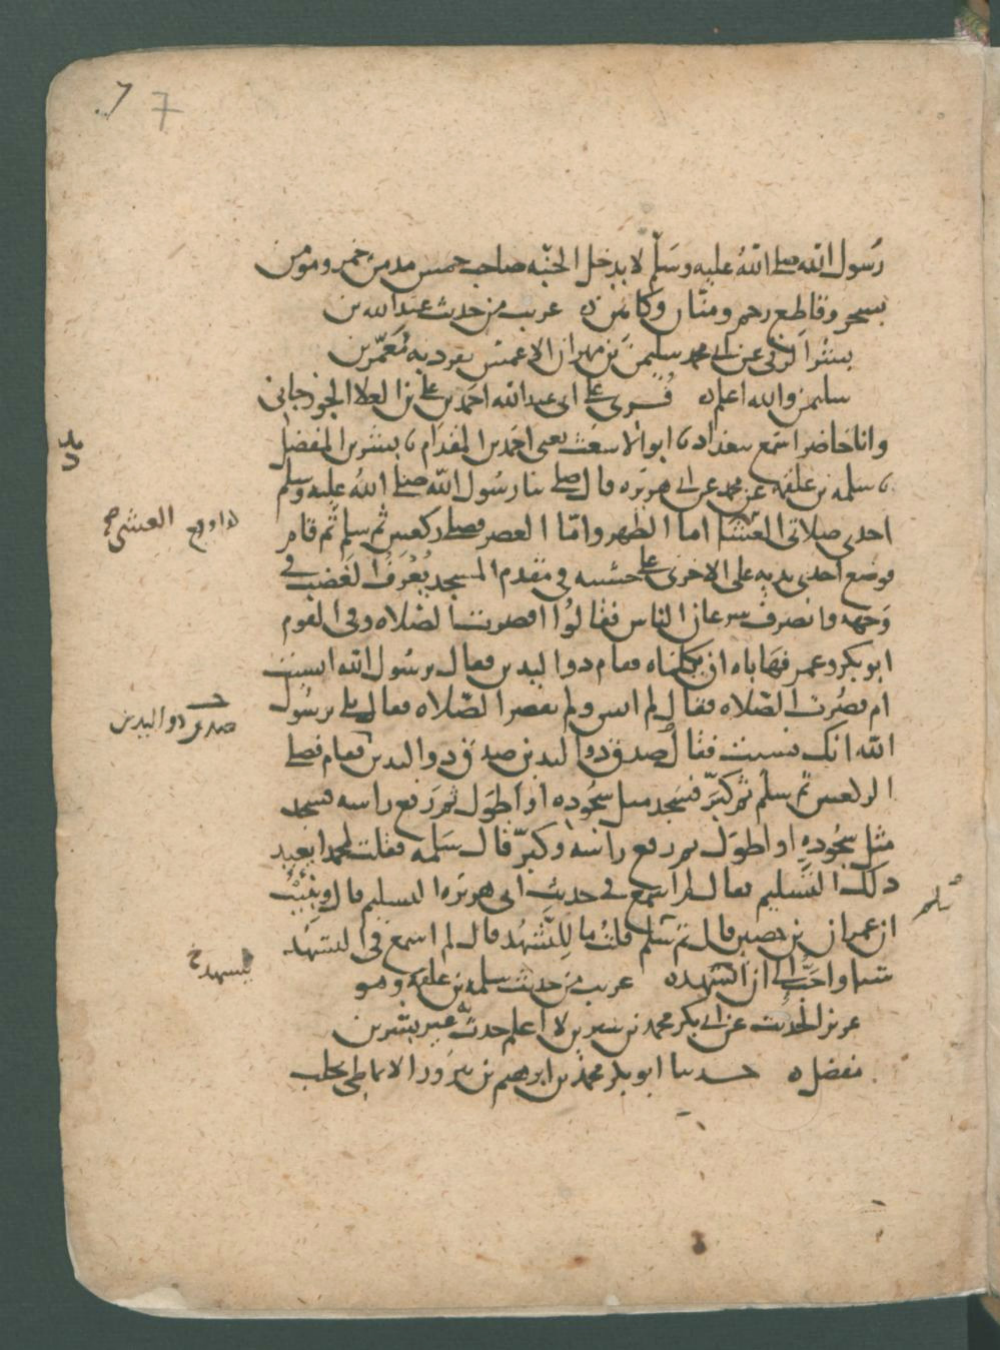 7 7
رسول الله صلى الله عليه وسلم لا يدخل الجنه صاحب خمس مدمن خمر ومومن
بسحر وقاطع رحم ومنان وكاهن ه غريب من حديث عبد الله بن
بشر الرقي عن ابي محمد سليمن بن مهران الاعمش تفرد به معمر بن
سليمن والله اعلم ه قرى على ابي عبد الله احمد بن علي بن العلا الجوزجاني
وانا حاضر اسمع ببغداد نا ابو الاشعث يعني احمد بن المقدام نا بشر بن المفضل
نا سلمه بن علقمه عن محمد عن ابي هريره قال صلى بنا رسول الله صلى الله عليه وسلم
احدى صلاتي العشا اما الظهر واما العصر فصلى ركعتين ثم سلم ثم قام
فوضع احدى يديه على الاخرى على خشبه في مقدم المسجد يعرف الغضب في
وجهه فانصرف سرعان الناس فقالوا اقصرت الصلاه وفي القوم
ابو بكر وعمر فهاباه ان يكلماه فقام ذو اليدين فقال يرسول الله انسيت
ام قصرت الصلاه فقال لم انس ولم تقصر الصلاه فقال بلى يرسول
الله انك نسيت فقال اصدق ذو اليدين صدق ذو اليدين فقام فصلى
الركعتين ثم سلم ثم كبر فسجد مثل سجوده او اطول ثم رفع راسه فسجد
مثل سجوده او اطول ثم رفع راسه وكبر قال سلمه فقلت لمحمد ابعيد
ذلك التسليم فقال لم اسمع في حديث ابي هريره التسليم قال ونبيت
ان عمران بن حصين قال ثم سلم قلت ما للتشهد قال لم اسمع في التشهد
شيا واحب الي ان اتشهد ه غريب من حديث سلمه بن علقمه وهو
عزيز الحديث عن ابي بكر محمد بن سيرين لا اعلم حدث به غير بشر بن
مفضل ه حدثنا ابو بكر محمد بن ابرهيم بن نيروز الانماطي بحلب
العشي صح
صدق ذو اليدين
تسلم
تشهد خ